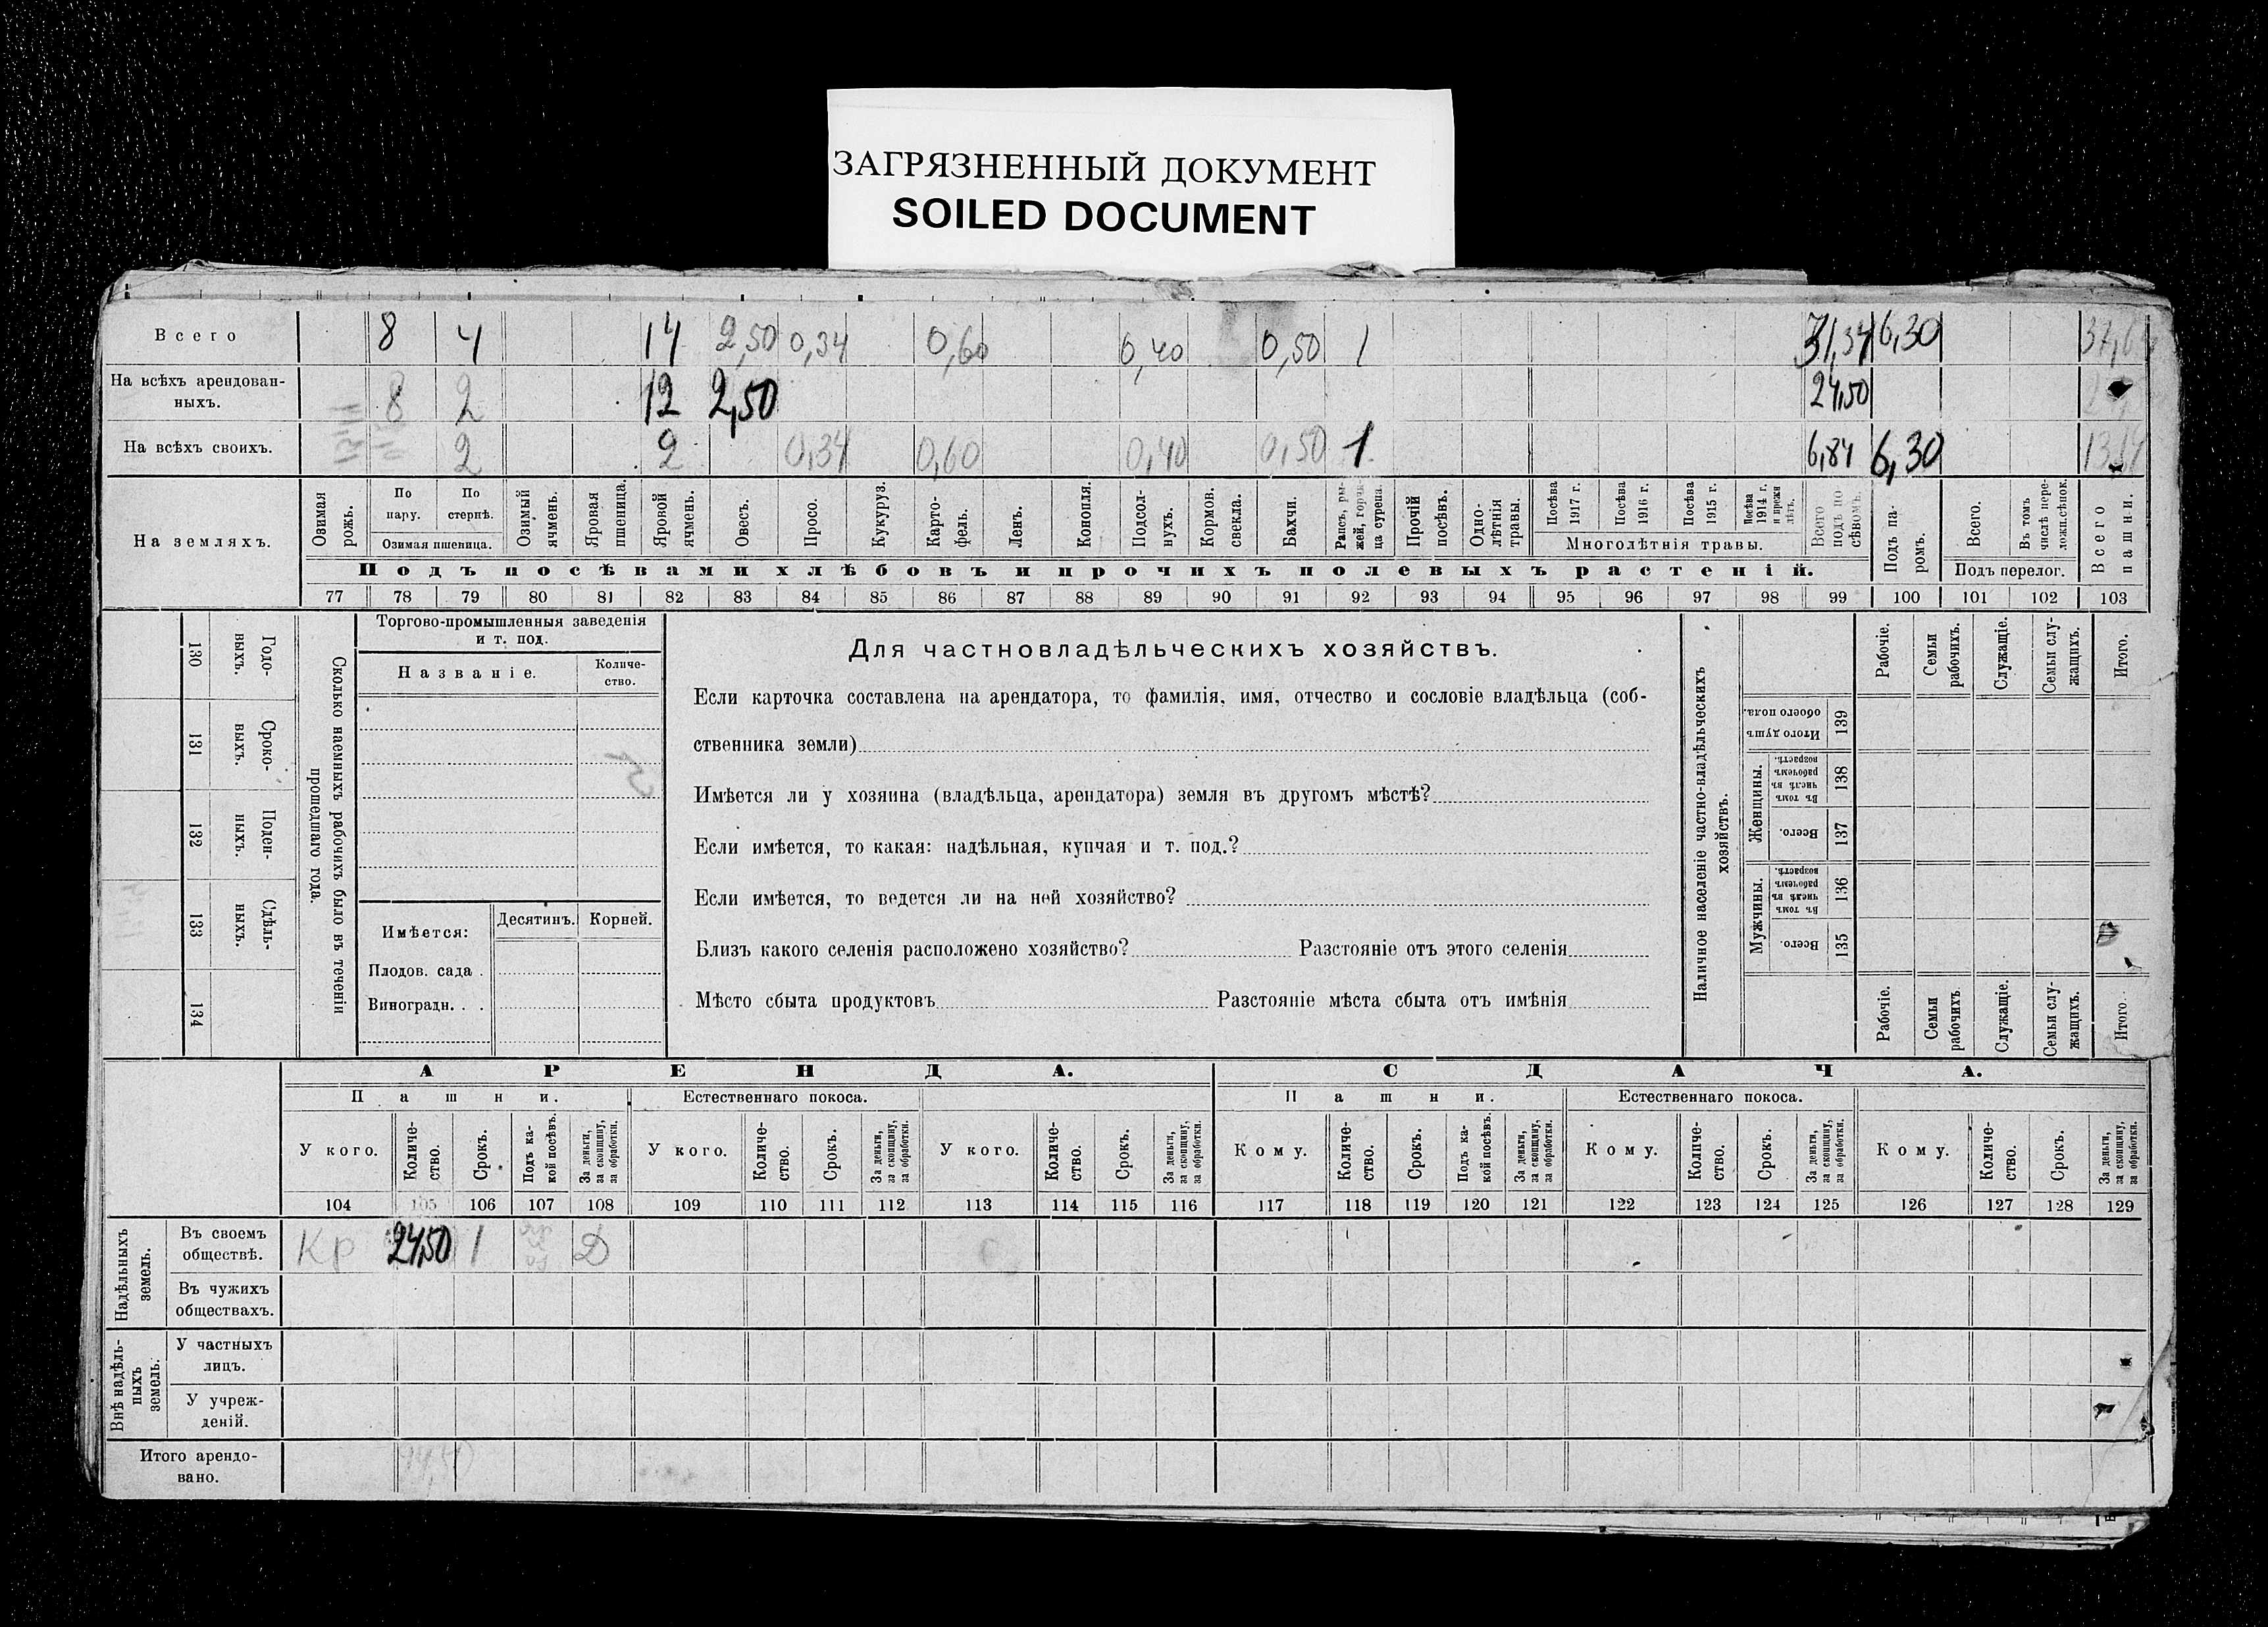 ЗАГРЯЗНЕННЫЙ ДОКУМЕНТ
SOILED DOCUMENT
Всего 8 4 14 2,50 0,34 0,60 0,40 0,50 1 31,34 6,30
На всѣхъ арендован-
ныхъ. 8 2 12 2,50 24,50
На всѣхъ своихъ. 2 2 0,34 0,60 0,40 0,50 1 6,84 6,30
На земляхъ.
Озимая рожь.
По пару.
По стернѣ.
Озимая пшеница.
Озимый ячмень.
Яровая пшеница.
Яровой ячмень.
Овесъ.
Просо.
Кукуруз.
Карто-
фель.
Ленъ.
Конопля.
Подсол-
нухъ.
Кормов. свекла.
Бахчи.
Рапсъ, ры-
жей, горчи-
ца сурепа.
Прочій посѣвъ.
Одно-
лѣтнія травы.
Посѣва 1917 г.
Посѣва 1916 г.
Посѣва 1915 г.
Посѣва 1914 г. и прежн лѣтъ.
Многолѣтнія травы.
Всего подъ по
сѣвомъ.
Подъ па-
ромъ.
Всего.
Въ томъ числѣ пере-
ложн.сѣнок.
Подъ перелог.
Всего пашни.
Подъ посѣвами хлѣбовъ и прочихъ полевыхъ растеній.
77 78 79 80 81 82 83 84 85 86 87 88 89 90 91 92 93 94 95 96 97 98 99 100 101 102 103
130 Годо-
выхъ.
131 Сроко-
выхъ.
132 Поден-
ныхъ.
133 Сдѣль-
ныхъ.
134
Сколько наемныхъ рабочихъ было въ теченіи
прошедшаго года.
Торгово-промышленныя заведенія
и т. под.
Названіе.
Количе-
ство.
Имѣется:
Десятинъ.
Корней.
Плодов. сада .
Виноградн. . .
Для частновладѣльческихъ хозяйствъ.
Если карточка составлена на арендатора, то фамилія, имя, отчество и сословіе владѣльца (соб-
ственника земли)
Имѣется ли у хозяина (владѣльца, арендатора) земля въ другомъ мѣстѣ?
Если имѣется, то какая: надѣльная, купчая и т. под.?
Если имѣется, то ведется ли на ней хозяйство?
Близъ какого селенія расположено хозяйство? Разстояніе отъ этого селенія
Мѣсто сбыта продуктовъ Разстояніе мѣста сбыта отъ имѣнія
Наличное населеніе частно-владѣльческихъ
хозяйствъ.
Рабочіе.
Семьи рабочихъ.
Служащіе.
Семьи слу-
жащихъ.
Итого.
Итого душъ обоего пола. 139
Женщины.
Въ томъ числѣ въ рабочемъ возрастѣ. 138
Всего. 137
Мужчины.
Въ томъ числѣ въ рабочемъ возрастѣ. 136
Всего. 135
Рабочіе.
Семьи рабочихъ
Служащіе.
Семьи слу-
жащихъ.
Итого
АРЕНДА.
СДАЧА.
Пашни.
Естественнаго покоса.
Пашни.
Естественнаго покоса.
У кого.
Количе-
ство.
Срокъ.
Подъ ка-
кой посѣвъ.
За деньги, за скопщину, за обработки.
У кого.
Количе-
ство.
Срокъ.
За деньги, за скопщину, за обработки.
У кого.
Количе-
ство.
Срокъ.
За деньги, за скопщину, за обработки.
Кому.
Количе-
ство.
Срокъ.
Подъ ка-
кой посѣвъ.
За деньги, за скопщину, за обработки.
Кому.
Количе-
ство.
Срокъ.
За деньги, за скопщину, за обработки.
Кому.
Количе-
ство.
Срокъ.
За деньги, за скопщину, за обработки.
104 105 106 107 108 109 110 111 112 113 114 115 116 117 118 119 120 121 122 123 124 125 126 127 128 129
Надѣльныхъ земель.
Въ своемъ
обществѣ. Кр 24,50 1 Д
Въ чужихъ
обществахъ.
Внѣ надѣль-
ныхъ земель.
У частныхъ
лицъ.
У учреж-
деній.
Итого арендо-
вано.